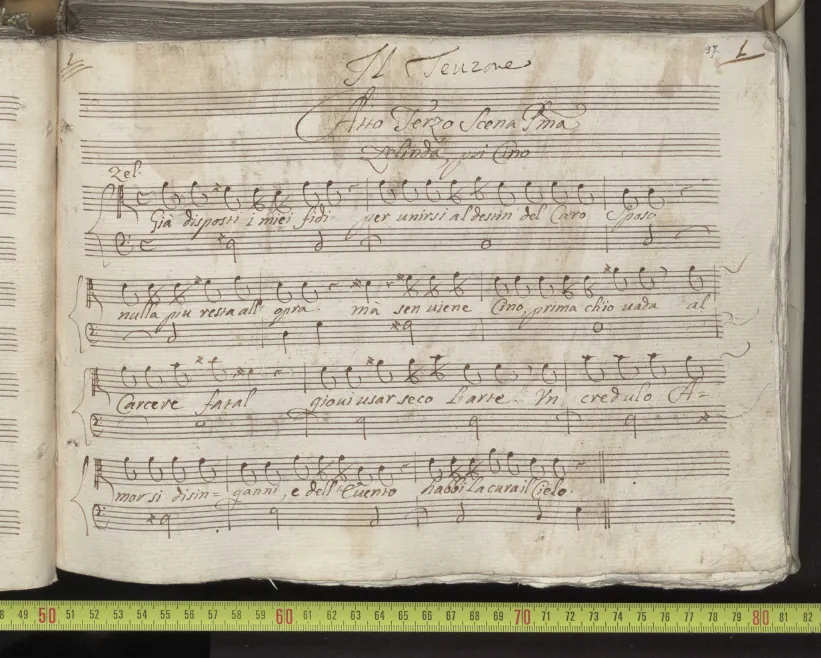 97. 1
Il Tenzone
Atto Terzo Scena Pma
Zelinda, poi Cino
Zel:
Già disposti i miei fidi per unirsi al destin del Caro sposo
nulla piu resta all' opra mà sen viene Cino, prima chio vada al
Carcere fatal giovi usar seco L'arte. Un credulo A=
mor si disin= ganni, e dell' Evento habbi la cura il Cielo.
48 49 50 51 52 53 54 55 56 57 58 59 60 61 62 63 64 65 66 67 68 69 70 71 72 73 74 75 76 77 78 79 80 81 82